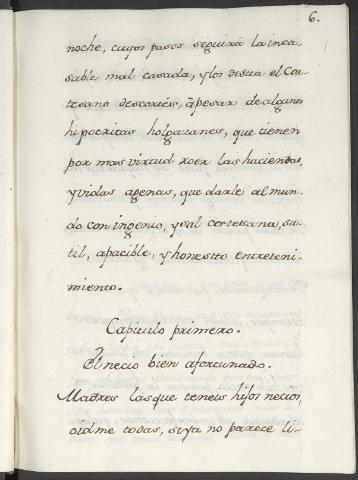 6.
noche, cuyos pasos seguirà la inca-
sable mal casada, y los desea el Cor-
tesano descortés, à pesar de algunos
hipocritas holgazanes, que tienen
por mas virtud roer las haciendas,
y vidas agenas, que darle al mun-
do con ingenio, y sal cortesana, su-
til, apacible, y honesto entreteni-
miento.
Capitulo primero.
El necio bien afortunado.
Madres las que teneis hijos necios,
oidme todas, si ya no parece li-